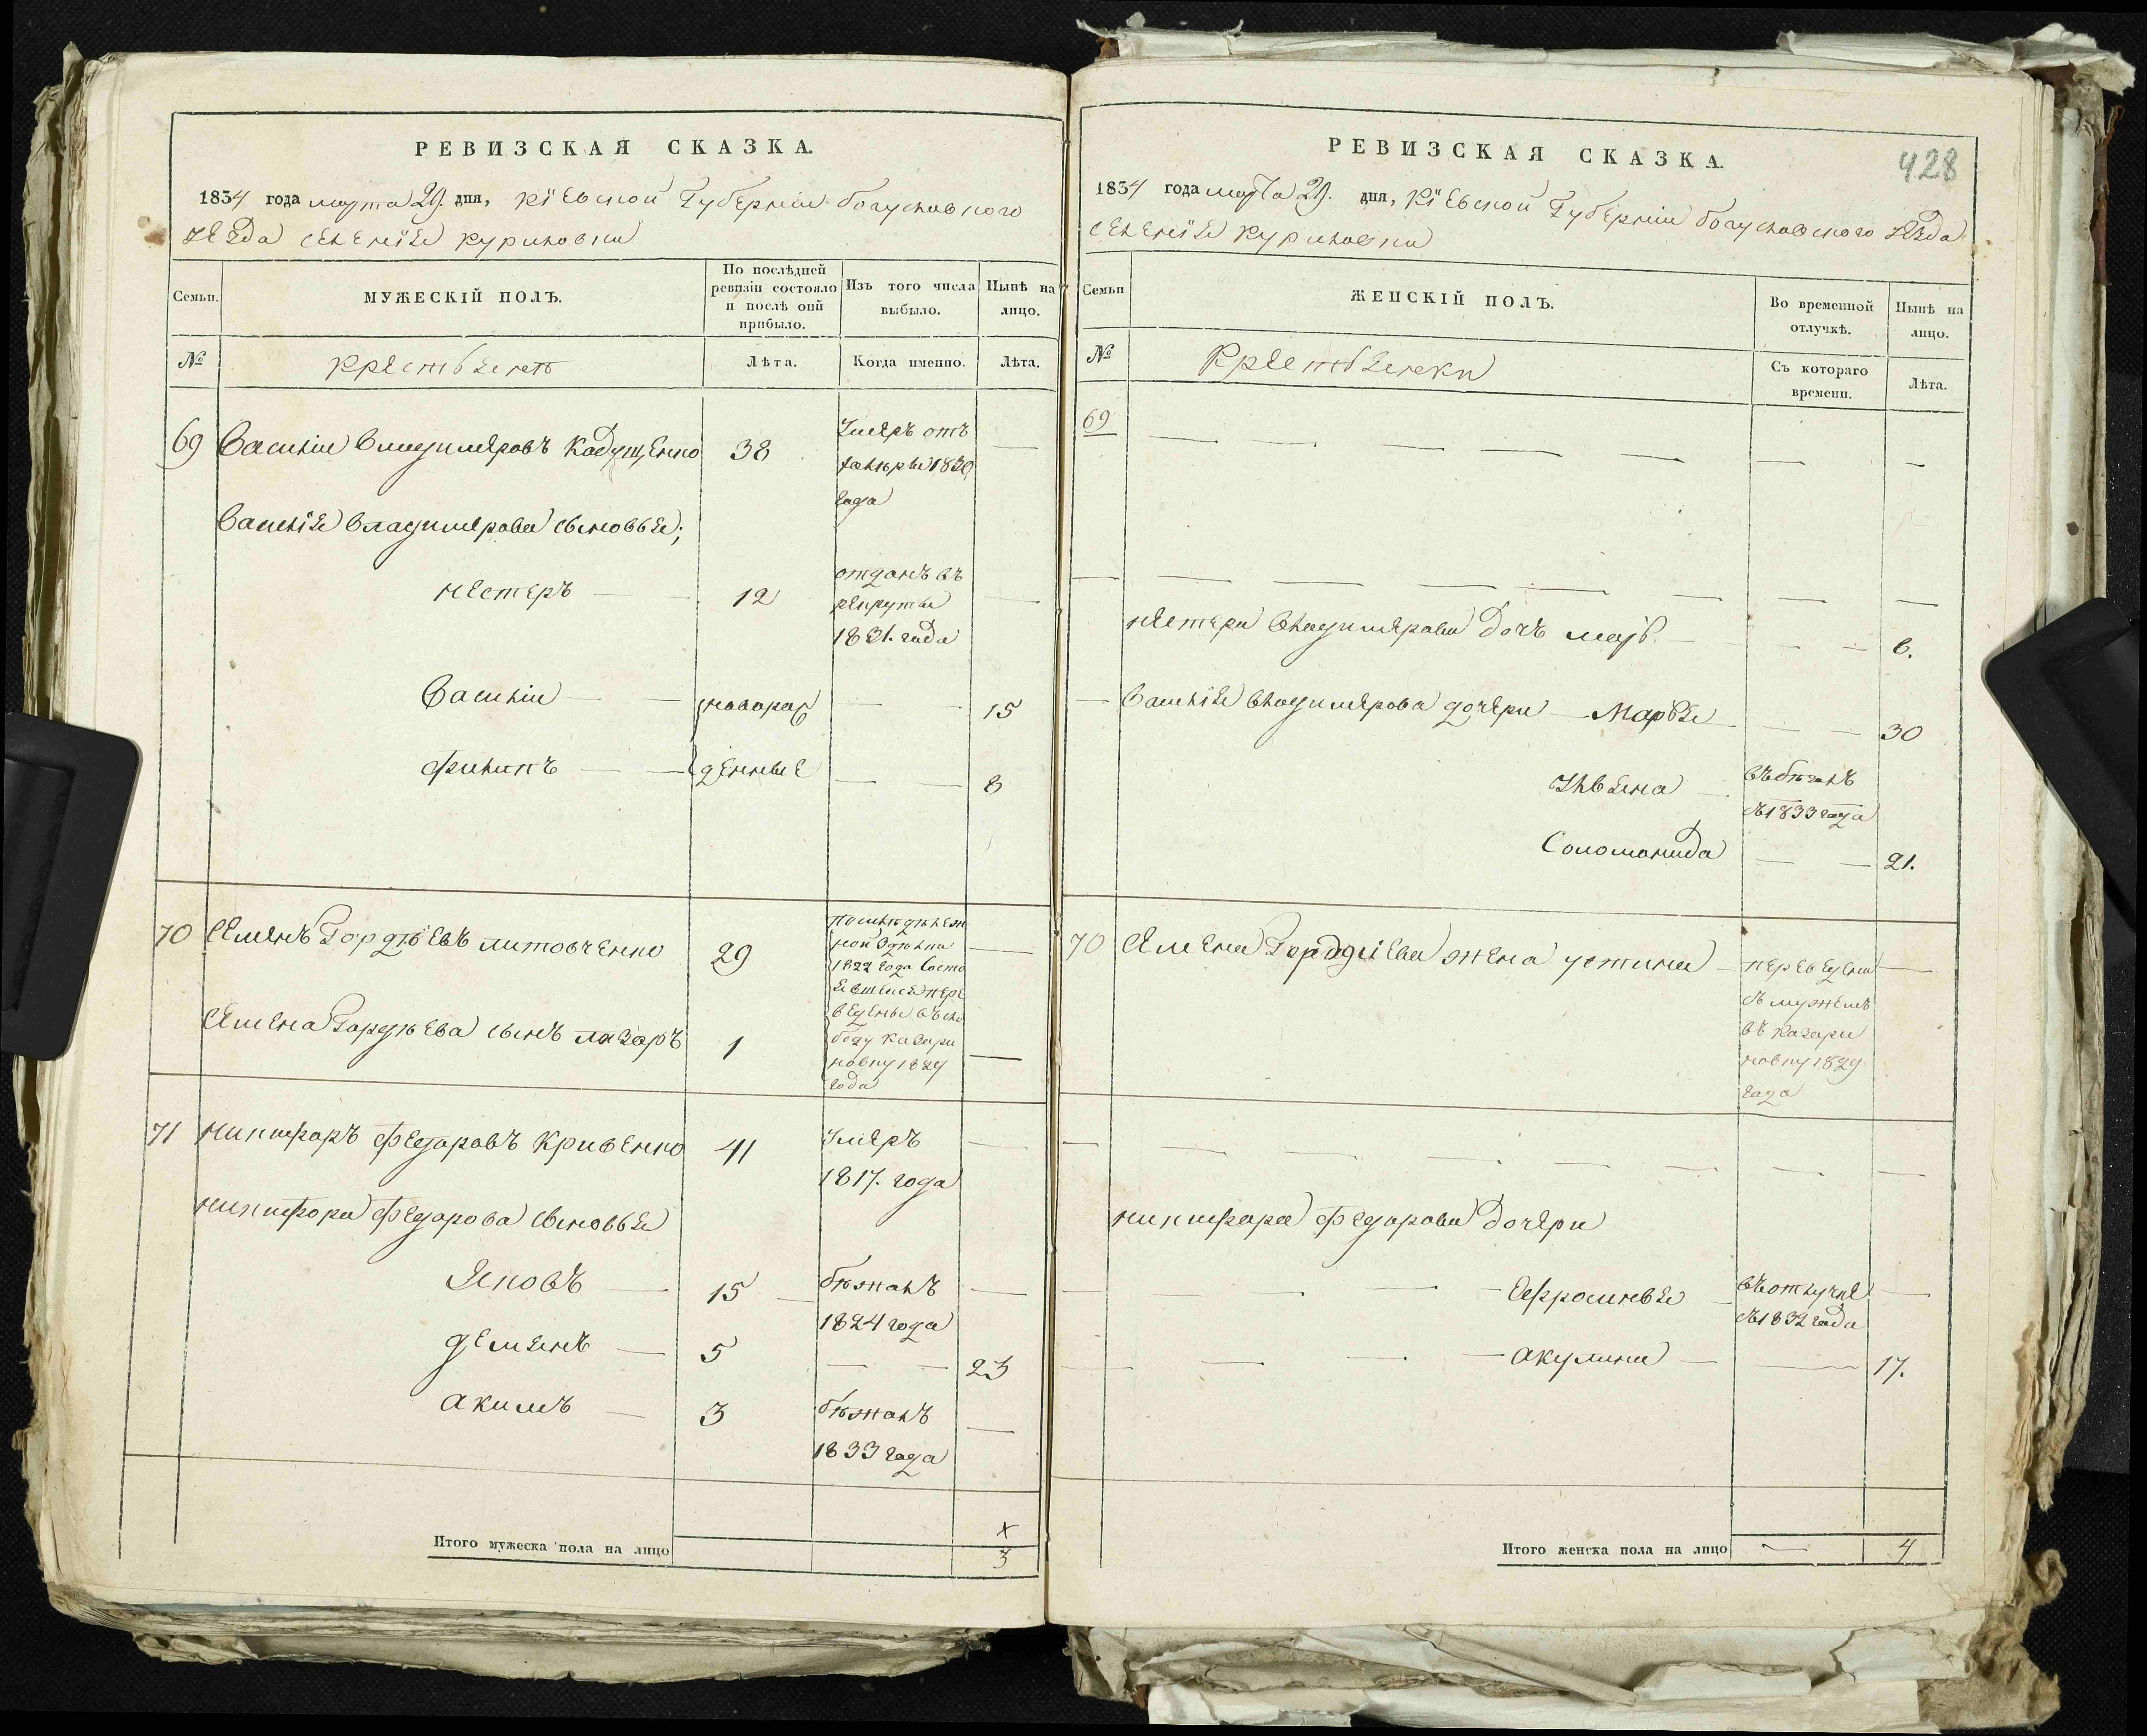 РЕВИЗСКАЯ СКАЗКА.
1834 года марта 29. дня, Кіевской Губерніи Богуславского
уезда селенія Куриловки
Семьи.
МУЖЕСКІЙ ПОЛЪ.
По послѣдней ревизіи состояло и послѣ оной прибыло.
Изъ того числа выбыло.
Нынѣ на лицо.
№
Крестьяне
Лѣта.
Когда именно.
Лѣта.
69 Василій Владимеровъ 38 Умеръ отъ
1830
года
Василія Владимерова сыновья;
Нестеръ — 12 отданъ въ
рекруты
1831. года
Василій — новорож 15
Филипъ — денные 8
70 Семенъ Гордѣевъ Литовченко 29
1822 года
пере
ведены въ сло
боду Казари
новку 1829
года
Семена Гордѣева сынъ Лазаръ 1
71 Никифоръ Федоровъ Кривенко 41 Умеръ
1817. года
Никифора Федорова сыновья
Яковъ — 15 бѣжалъ
1824 года
Демянъ — 5 23
Акимъ — 3 бѣжалъ
1833 года
Итого мужеска пола на лицо
х
3
РЕВИЗСКАЯ СКАЗКА.
428
1834 года марта 29. дня, Кіевской Губерніи Богуславского уезда
селенія Куриловки
Семьи
ЖЕНСКІЙ ПОЛЪ.
Во временной отлучкѣ.
Нынѣ на лицо.
№
Крестьянки
Съ котораго времени.
Лѣта.
69
Нестера Владимерова дочъ 6.
Василія Владимерова дочери — Марья 30
Ульяна —
съ 1833 года
Соломанида 21.
70 Семена Гордѣева жена Устина — переведена
съ мужемъ
въ Казари
новку 1829
года
Никифора Федорова дочери
Ефросинья въ отлучке
съ 1832 года
Акулина — 17.
Итого женска пола на лицо — 4